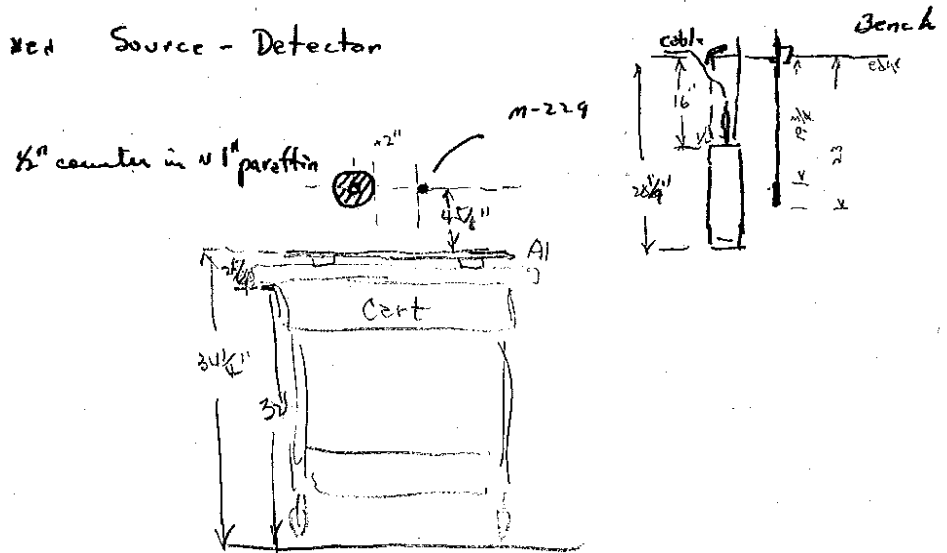 Bench
Source - Detector
cable
edge
16"
23
m-229
~2"
1/2" counter in ~ 1" paraffin
4 5/8"
Al
Cart
34 1/4"
32"